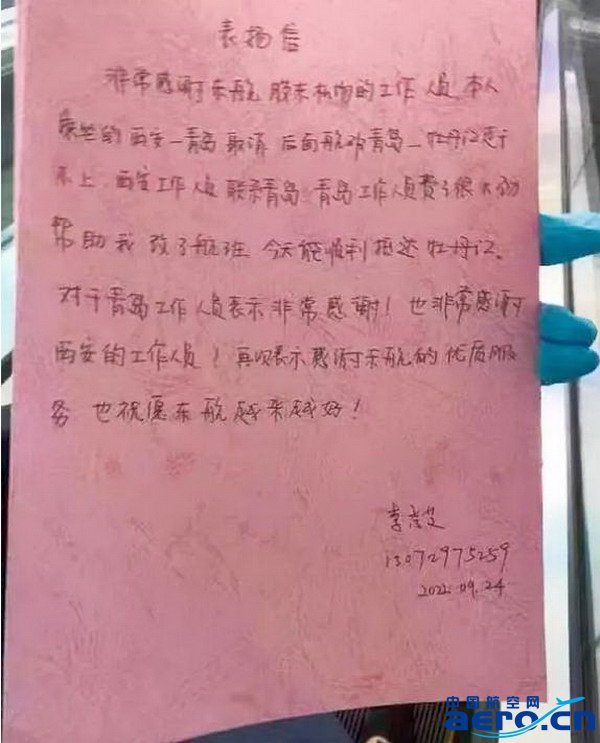 表扬信
非常感谢东航 股东机构的工作人员 本人
乘坐的西安一青岛 取消 后面航班青岛一牡丹江赶
不上 西安工作人员 联系青岛 青岛工作人员费了很大劲
帮助我 改了航班 今天能顺利抵达 牡丹江。
对于青岛工作人员表示非常感谢！也非常感谢
西安的工作人员！再次表示感谢东航的优质服
务 也祝愿东航越来越好！
李
13072975259
2022.09.24
中国航空网
aero.cn